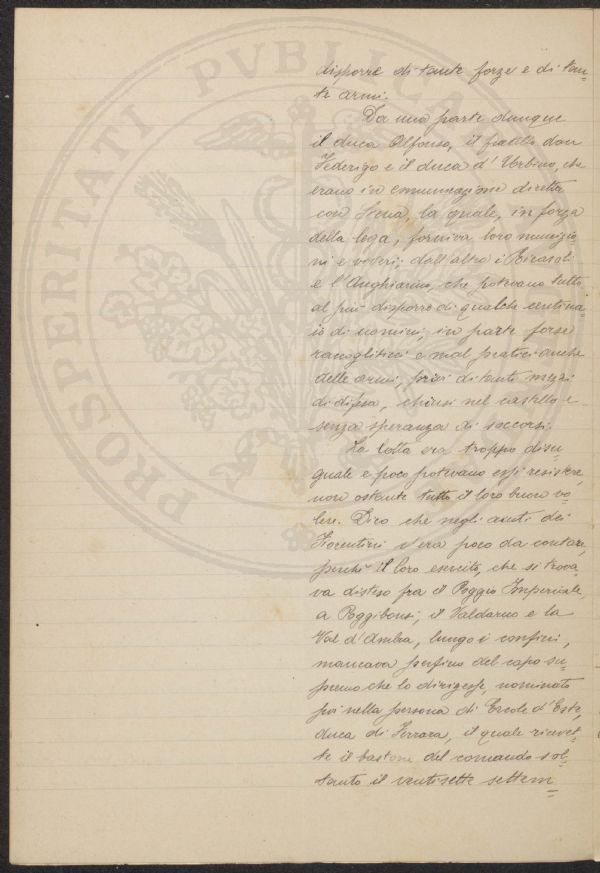 PROSPERITATI PVBLICAE
disporre di tante forze e di tan=
te armi.
Da una parte dunque
il duca Alfonso, il fratello don
Federigo e il duca d'Urbino, che
erano in comunicazione diretta
con Siena, la quale, in forza
della lega, forniva loro munizio=
ni e viveri; dall'altro i Ricasoli
e l'Anghiarino, che potevano tutto
al più disporre di qualche centina=
io di uomini, in parte forse
raccogliticci e mal pratici anche
delle armi, privi di tanti mezzi
di difesa, chiusi nel castello e
senza speranza di soccorsi.
La lotta era troppo disu=
guale e poco potevano essi resistere,
non ostante tutto il loro buon vo=
lere. Dico che negli aiuti dei
Fiorentini v'era poco da contare,
perchè il loro esercito, che si trova=
va disteso fra il Poggio Imperiale,
a Poggibonsi, il Valdarno e la
Val d'Ambra, lungo i confini,
mancava perfino del capo su=
premo che lo dirigesse, nominato
poi nella persona di Ercole d'Este,
duca di Ferrara, il quale ricevet=
te il bastone del comando sol=
tanto il ventisette settem=